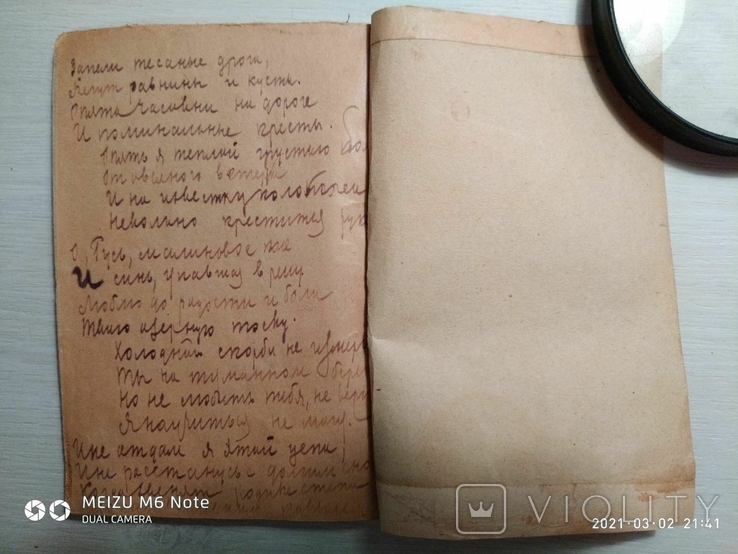 Запели тесаные дроги,
Бегут равнины и кусты.
Опять часовни на дороге
И поминальные кресты.
Опять я теплой грустью бол
От овсяного ветерка
И на известку колоколен
Невольно крестится рук
О, Русь, малиновое поле
И синь, упавшая в реку
Люблю до радости и боли
Твою озерную тоску.
Холодной скорби не измер
Ты на туманном берег
Но не любить тебя, не вери
Я научиться не могу.
И не отдам я этой цепи,
И не расстанусь с долгим сно
Когда звенят родные степи
MEIZU M6 Note
DUAL CAMERA
VIOLITY
2021-03-02 21:41